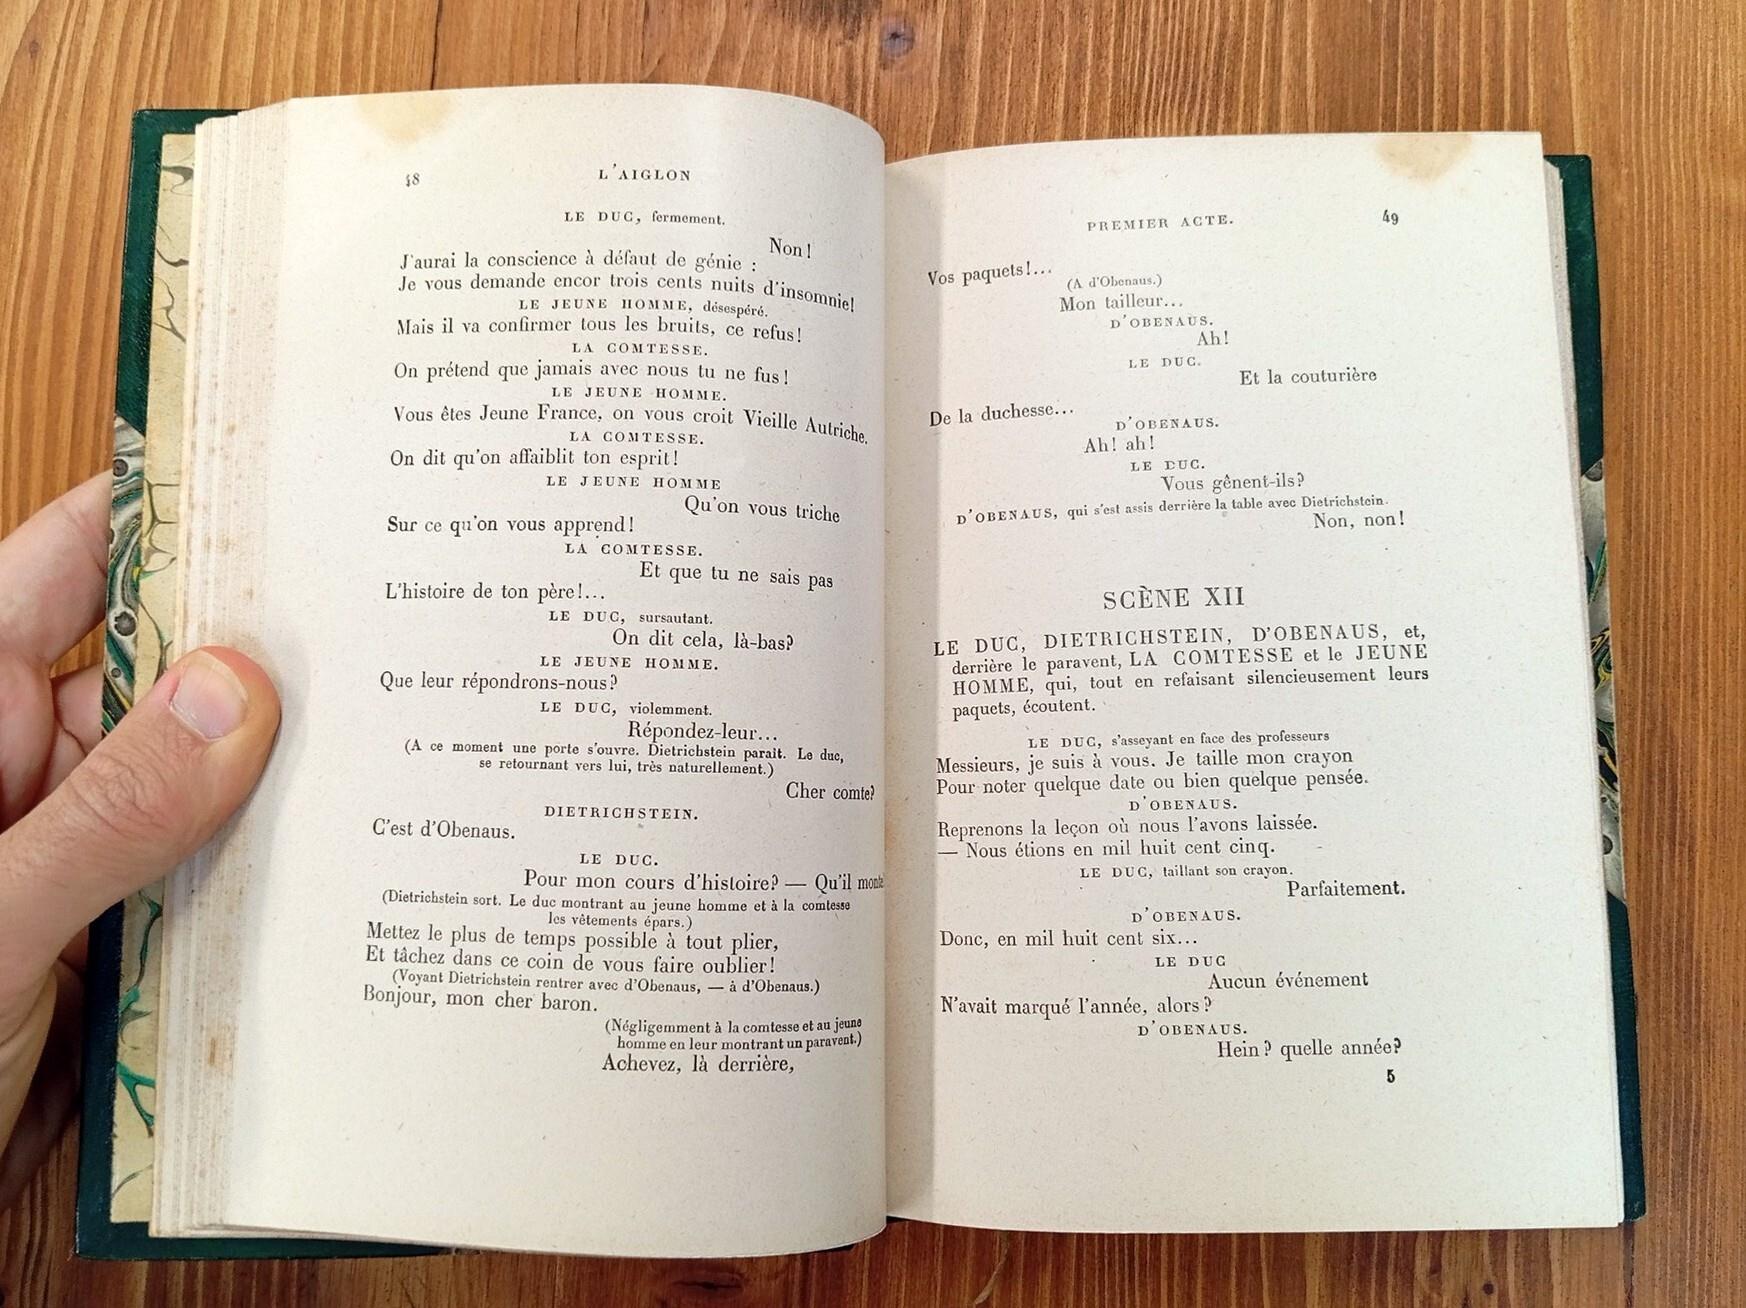 48
L'AIGLON
LE DUC, fermement.
Non!
J'aurai la conscience à défaut de génie :
Je vous demande encor trois cents nuits d'insomnie!
LE JEUNE HOMME, désespéré.
Mais il va confirmer tous les bruits, ce refus!
LA COMTESSE.
On prétend que jamais avec nous tu ne fus!
LE JEUNE HOMME.
Vous êtes Jeune France, on vous croit Vieille Autriche.
LA COMTESSE.
On dit qu'on affaiblit ton esprit!
LE JEUNE HOMME
Qu'on vous triche
Sur ce qu'on vous apprend!
LA COMTESSE.
Et que tu ne sais pas
L'histoire de ton père!...
LE DUC, sursautant.
On dit cela, là-bas?
LE JEUNE HOMME.
Que leur répondrons-nous?
LE DUC, violemment.
Répondez-leur...
(A ce moment une porte s'ouvre. Dietrichstein paraît. Le duc,
se retournant vers lui, très naturellement.)
Cher comte?
DIETRICHSTEIN.
C'est d'Obenaus.
LE DUC.
Pour mon cours d'histoire? — Qu'il monte
(Dietrichstein sort. Le duc montrant au jeune homme et à la comtesse
les vêtements épars.)
Mettez le plus de temps possible à tout plier,
Et tâchez dans ce coin de vous faire oublier!
(Voyant Dietrichstein rentrer avec d'Obenaus, — à d'Obenaus.)
Bonjour, mon cher baron.
(Négligemment à la comtesse et au jeune
homme en leur montrant un paravent.)
Achevez, là derrière,
PREMIER ACTE.
49
Vos paquets!...
(A d'Obenaus.)
Mon tailleur...
D'OBENAUS.
Ah!
LE DUC.
Et la couturière
De la duchesse...
D'OBENAUS.
Ah! ah!
LE DUC.
Vous gênent-ils?
D'OBENAUS, qui s'est assis derrière la table avec Dietrichstein.
Non, non!
SCÈNE XII
LE DUC, DIETRICHSTEIN, D'OBENAUS, et,
derrière le paravent, LA COMTESSE et le JEUNE
HOMME, qui, tout en refaisant silencieusement leurs
paquets, écoutent.
LE DUC, s'asseyant en face des professeurs
Messieurs, je suis à vous. Je taille mon crayon
Pour noter quelque date ou bien quelque pensée.
D'OBENAUS.
Reprenons la leçon où nous l'avons laissée.
— Nous étions en mil huit cent cinq.
LE DUC, taillant son crayon.
Parfaitement.
D'OBENAUS.
Donc, en mil huit cent six...
LE DUC
Aucun événement
N'avait marqué l'année, alors?
D'OBENAUS.
Hein? quelle année?
5